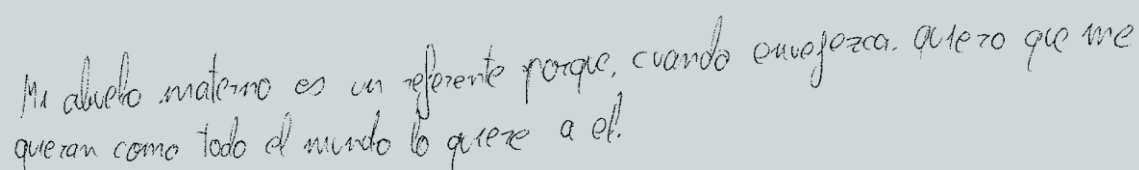 Mi abuelo materno es un referente porque, cuando envejezca, quiero que me
quieran como todo el mundo lo quiere a él.